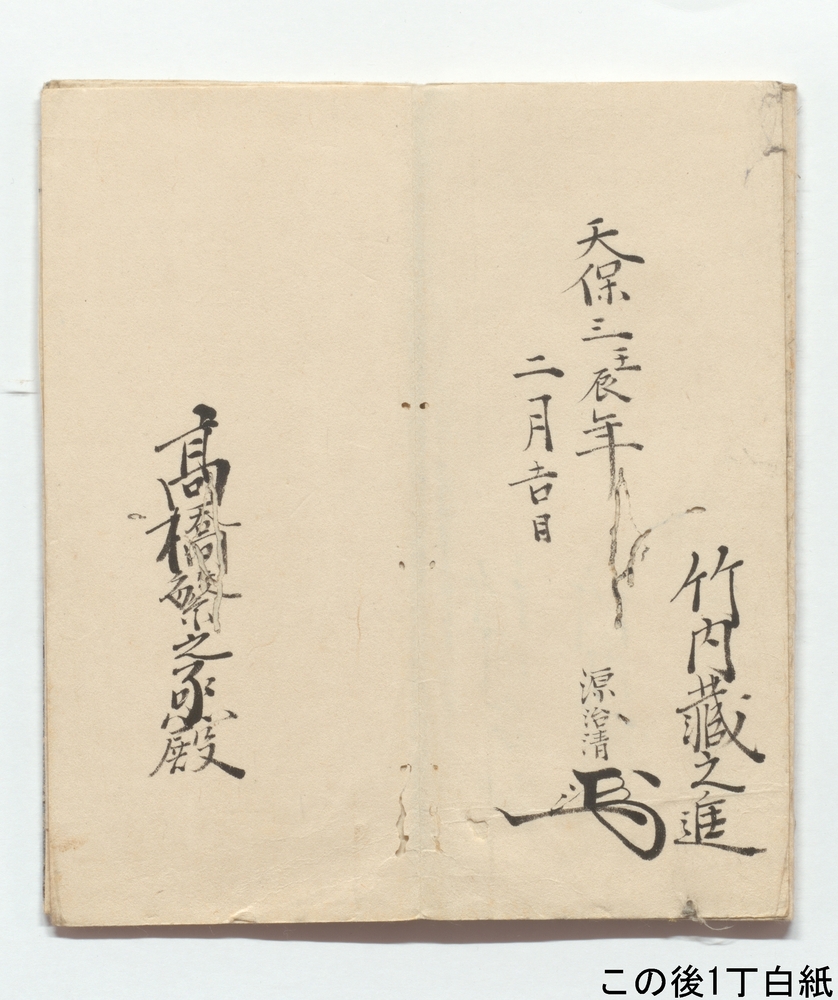 竹内蔵之進
源治清
天保三壬辰年
二月吉日
高橋繁之丞殿
この後1丁白紙